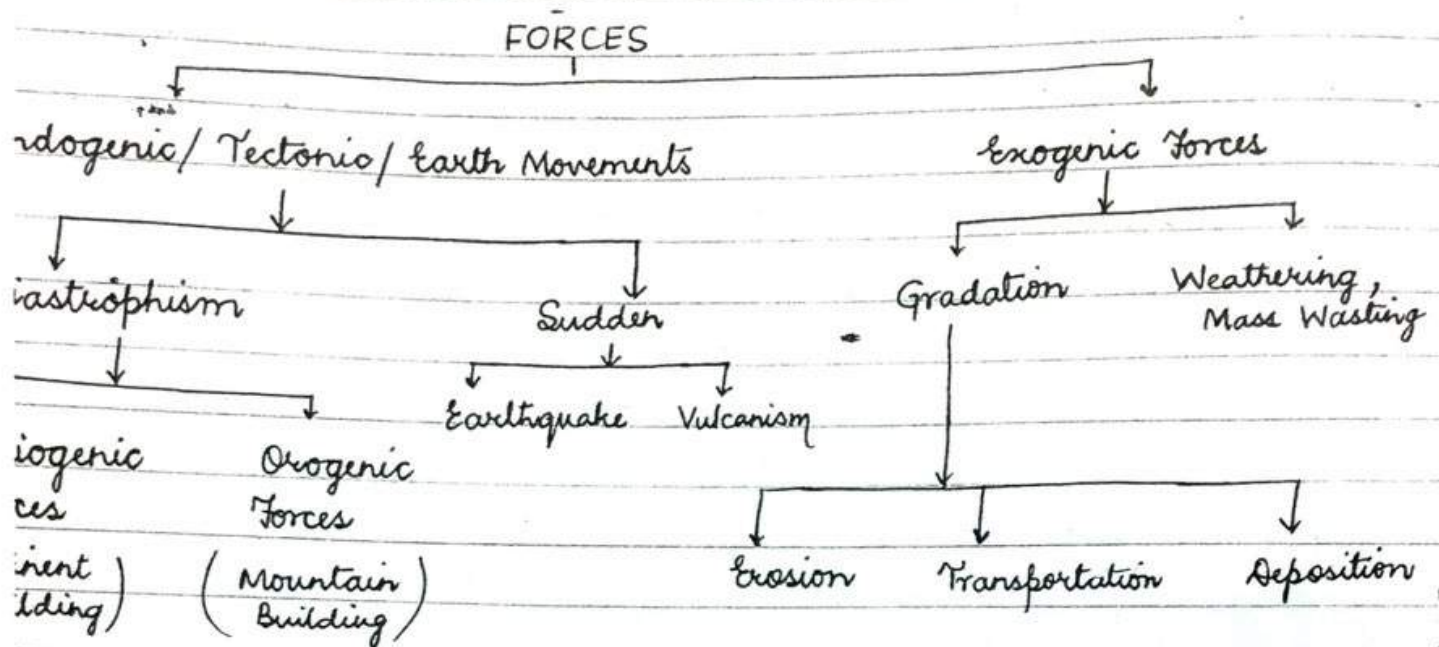 FORCES
ndogenic/ Tectonic/ Earth Movements
Exogenic Forces
iastrophism
Sudden
Gradation
Weathering,
Mass Wasting
Earthquake
Vulcanism
iogenic
ces
Orogenic
Forces
inent
lding)
(Mountain
Building)
Erosion
Transportation
Deposition